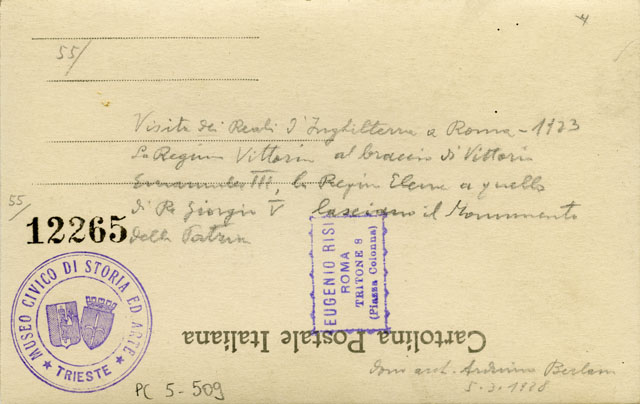 55/
4
Visita dei Reali d'Inghilterra a Roma - 1923
La Regina Vittoria al braccio di Vittorio
Emanuele III, la Regina Elena a quello
di Re Giorgio V lasciano il Monumento
della Patria
55/
12265
MUSEO CIVICO DI STORIA ED ARTE
★ TRIESTE ★
EUGENIO RISI
ROMA
TRITONE 8
(Piazza Colonna)
Cartolina Postale Italiana
dono arch. Arduino Berlam
5-3-1928
PC 5-509